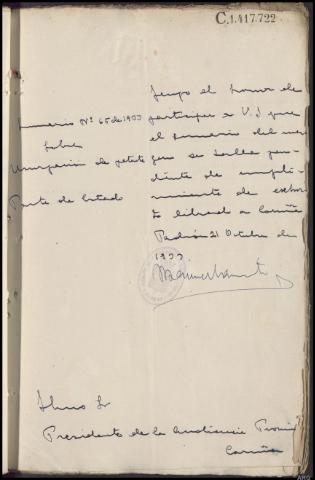 C.1.417.722
Sumario Nº 65 de 1933
Sobre
Usurpación de
Parte de Estado
Tengo el honor de
participar a V.I. que
el sumario del mar
gen se halla pen-
diente de cumpli-
miento de exhor-
to librado a Coruña
Padrón 21 Octubre de
1933
Ilmo Sr
Presidente de la Audiencia Provin
Coruña